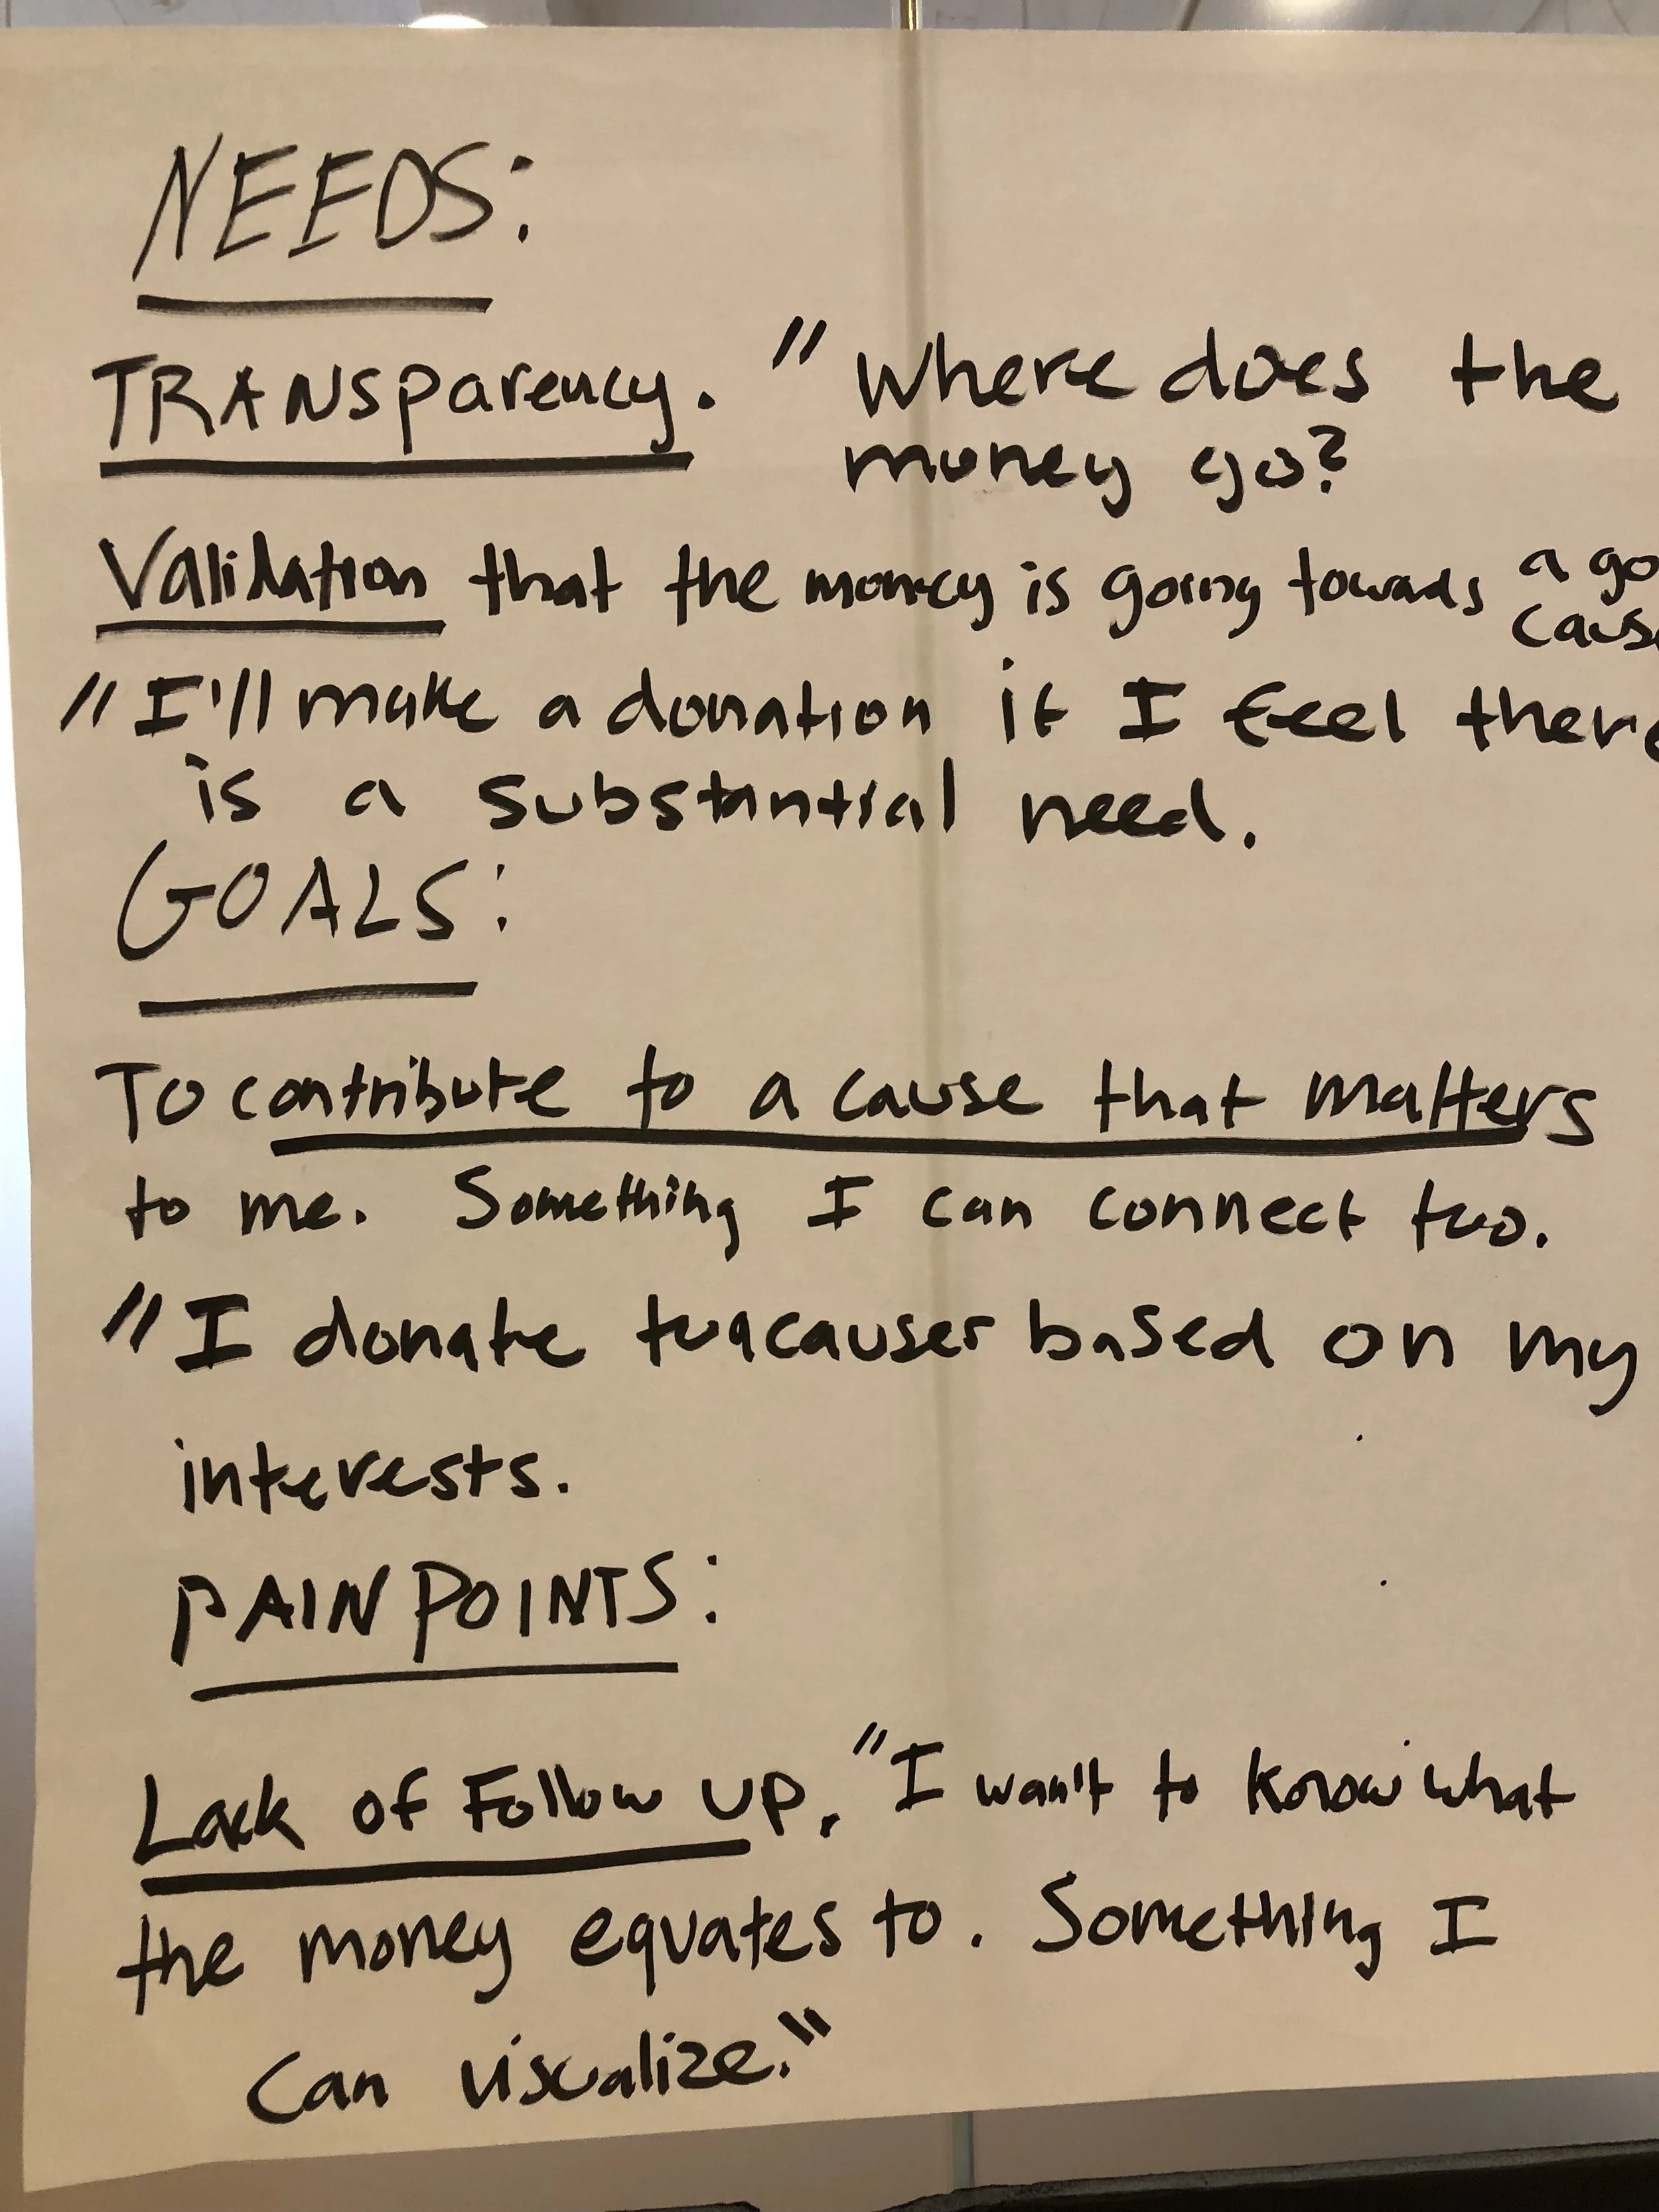 NEEDS:
TRANSparency. "Where does the
money go?
Validation that the money is going towards a go
caus
"I'll make a donation if I feel there
is a substantial need.
GOALS:
To contribute to a cause that matters
to me. Something I can connect too.
"I donate to a causes based on my
interests.
PAIN POINTS:
Lack of Follow up. "I wan't to know what
the money equates to. Something I
can visualize."